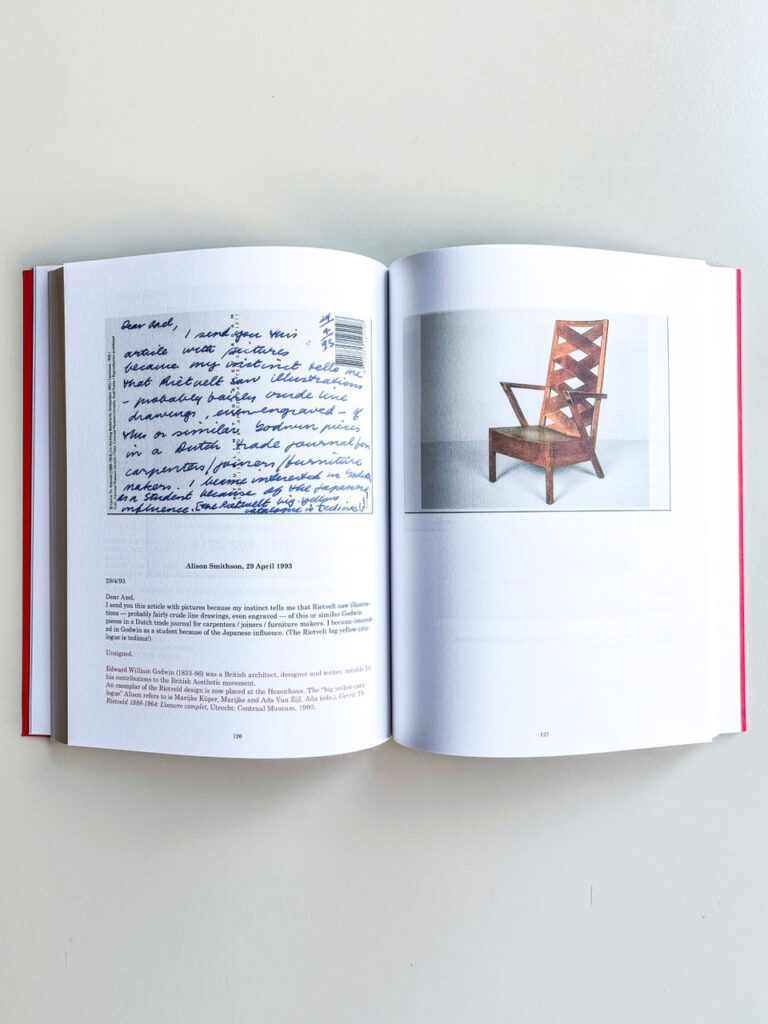 Dear Axel, I send you this
29/4/93
article with pictures
because my instinct tells me
that Rietvelt saw illustrations
– probably fairly crude line
drawings, even engraved – of
this or similar Godwin pieces
in a Dutch trade journal for
carpenters/joiners/furniture
makers. I became interested in Godwin
as a student because of the Japanese
influence. (The Rietvelt big yellow
catalogue is tedious!)
Alison Smithson, 29 April 1993
29/4/93
Dear Axel,
I send you this article with pictures because my instinct tells me that Rietvelt saw illustra-
tions — probably fairly crude line drawings, even engraved — of this or similar Godwin
pieces in a Dutch trade journal for carpenters / joiners / furniture makers. I became interest-
ed in Godwin as a student because of the Japanese influence. (The Rietvelt big yellow cata-
logue is tedious!)
Unsigned.
Edward William Godwin (1833-86) was a British architect, designer and writer, notable for
his contributions to the British Aesthetic movement.
An exemplar of the Rietveld design is now placed at the Hexenhaus. The "big yellow cata-
logue" Alison refers to is Marijke Küper, Marijke and Ada Van Zijl, Ada (eds.), Gerrit Th.
Rietveld 1888-1964: L'oeuvre complet, Utrecht: Centraal Museum, 1993.
126
127